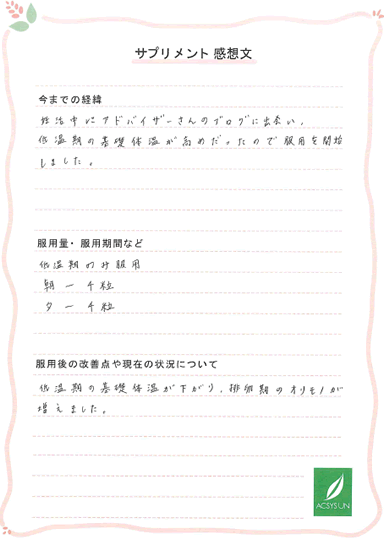 サプリメント 感想文
今までの経緯
妊活中にアドバイザーさんのブログに出会い、
低温期の基礎体温が高めだったので服用を開始
しました。
服用量・服用期間など
低温期のみ服用
朝ー4粒
夕ー4粒
服用後の改善点や現在の状況について
低温期の基礎体温が下がり、排卵期のオリモノが
増えました。
ACSYSUN